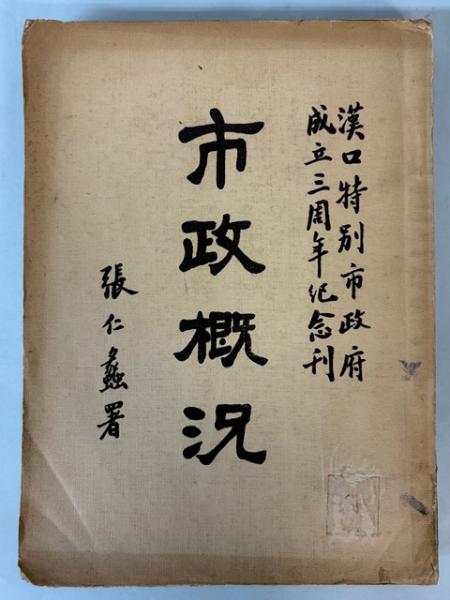 漢口特别市政府
成立三周年纪念刊
市政概況
張仁蠡署